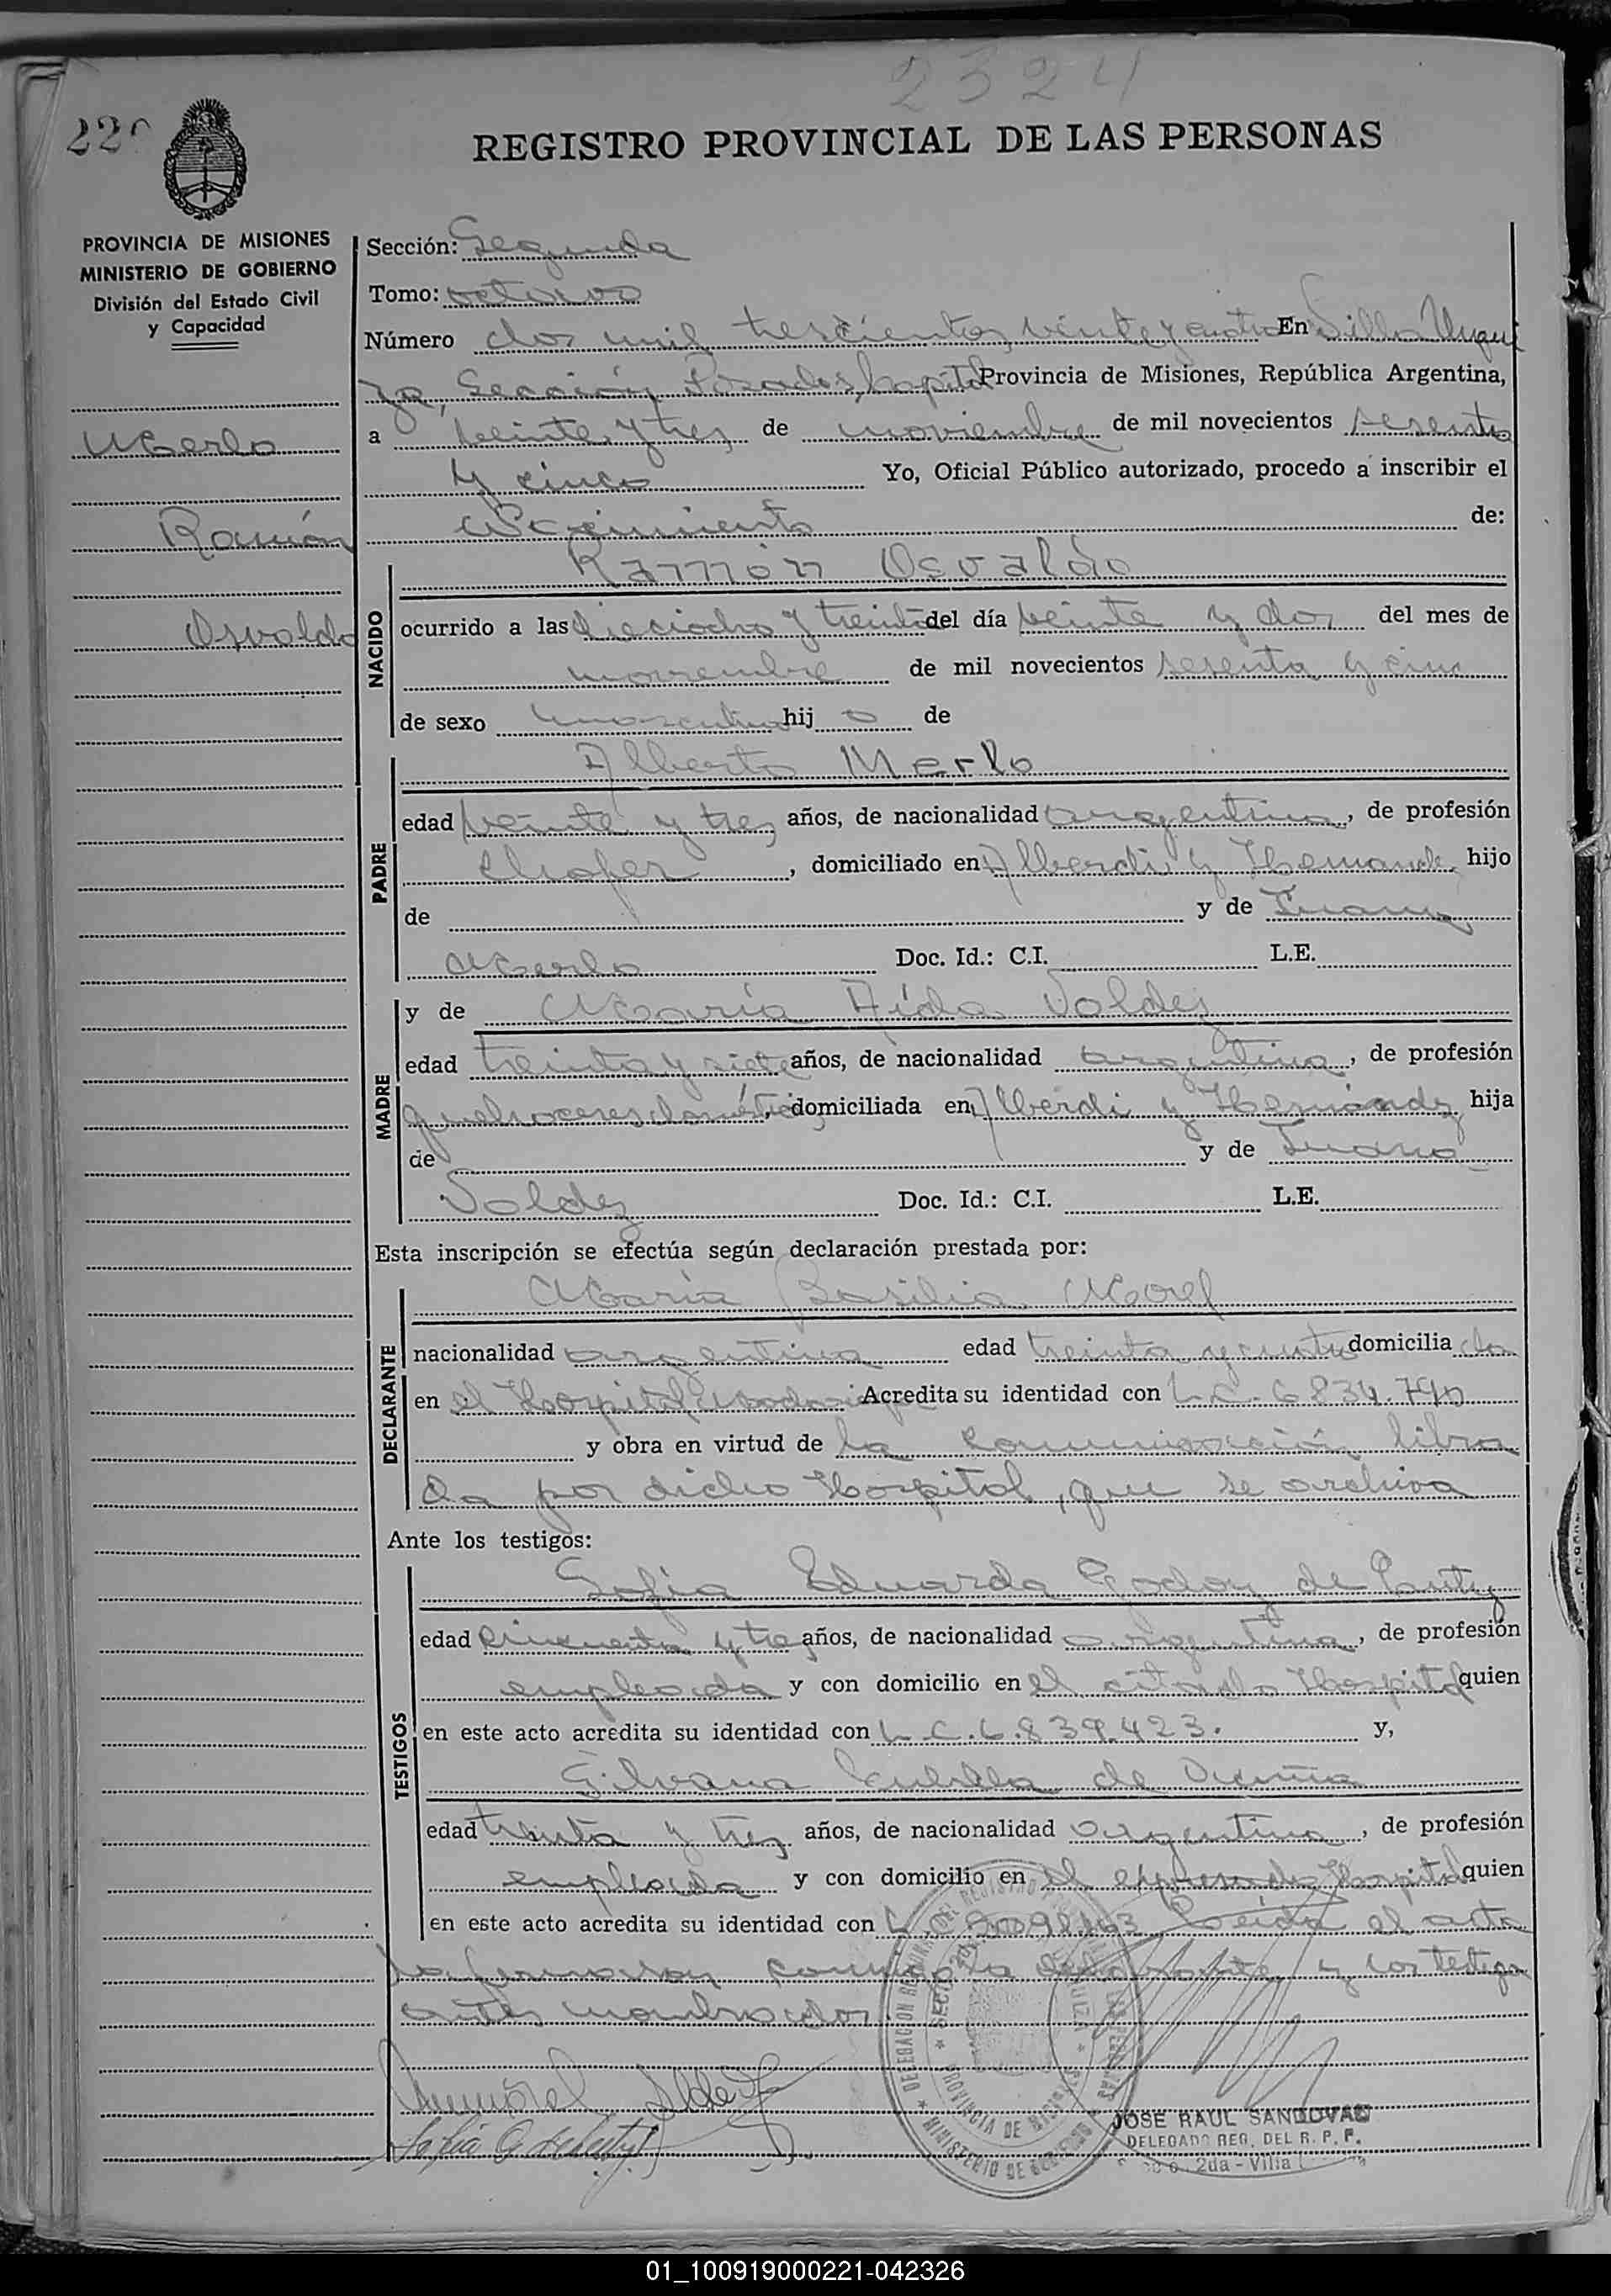 2324
220
REGISTRO PROVINCIAL DE LAS PERSONAS
PROVINCIA DE MISIONES
MINISTERIO DE GOBIERNO
División del Estado Civil
y Capacidad
Merlo
Ramón
Osvaldo
Sección: Segunda
Tomo: octavo
Número dos mil trescientos veinte y cuatro En Villa Urqui
za, Sección Posadas, Capital Provincia de Misiones, República Argentina,
a veinte y tres de noviembre de mil novecientos sesenta
y cinco Yo, Oficial Público autorizado, procedo a inscribir el
Nacimiento de:
NACIDO
Ramón Osvaldo
ocurrido a las dieciocho y treinta del día veinte y dos del mes de
noviembre de mil novecientos sesenta y cinco
de sexo masculino hij o de
PADRE
Alberto Merlo
edad veinte y tres años, de nacionalidad argentina, de profesión
chofer, domiciliado en Alberdi y Hernandez hijo
de y de Juana
Merlo Doc. Id.: C.I. L.E.
MADRE
y de María Aída Valdez
edad treinta y siete años, de nacionalidad argentina, de profesión
quehaceres domésticos, domiciliada en Alberdi y Hernández hija
de y de Juana
Valdez Doc. Id.: C.I. L.E.
Esta inscripción se efectúa según declaración prestada por:
DECLARANTE
María Basilia Morel
nacionalidad argentina edad treinta y cuatro domicilia da
en el Hospital Madariaga Acredita su identidad con L.C. 6834.790
y obra en virtud de la comunicación libra
da por dicho Hospital, que se archiva
Ante los testigos:
TESTIGOS
Sofia Eduarda Godoy de
edad cincuenta y tres años, de nacionalidad argentina, de profesión
empleada y con domicilio en el citado Hospital quien
en este acto acredita su identidad con L.C. 6.839.423. y,
Silvana de
edad treinta y tres años, de nacionalidad argentina, de profesión
empleada y con domicilio en el expresado Hospital quien
en este acto acredita su identidad con L.C. Leída el acta
la firmaron conmigo la declarante y los testigos
antes nombrados.
DELEGACION
PROVINCIA DE MISIONES
MINISTERIO DE GOBIERNO
JOSE RAUL SANDOVAL
DELEGADO REG. DEL R. P. P.
2da - Villa
01_100919000221-042326